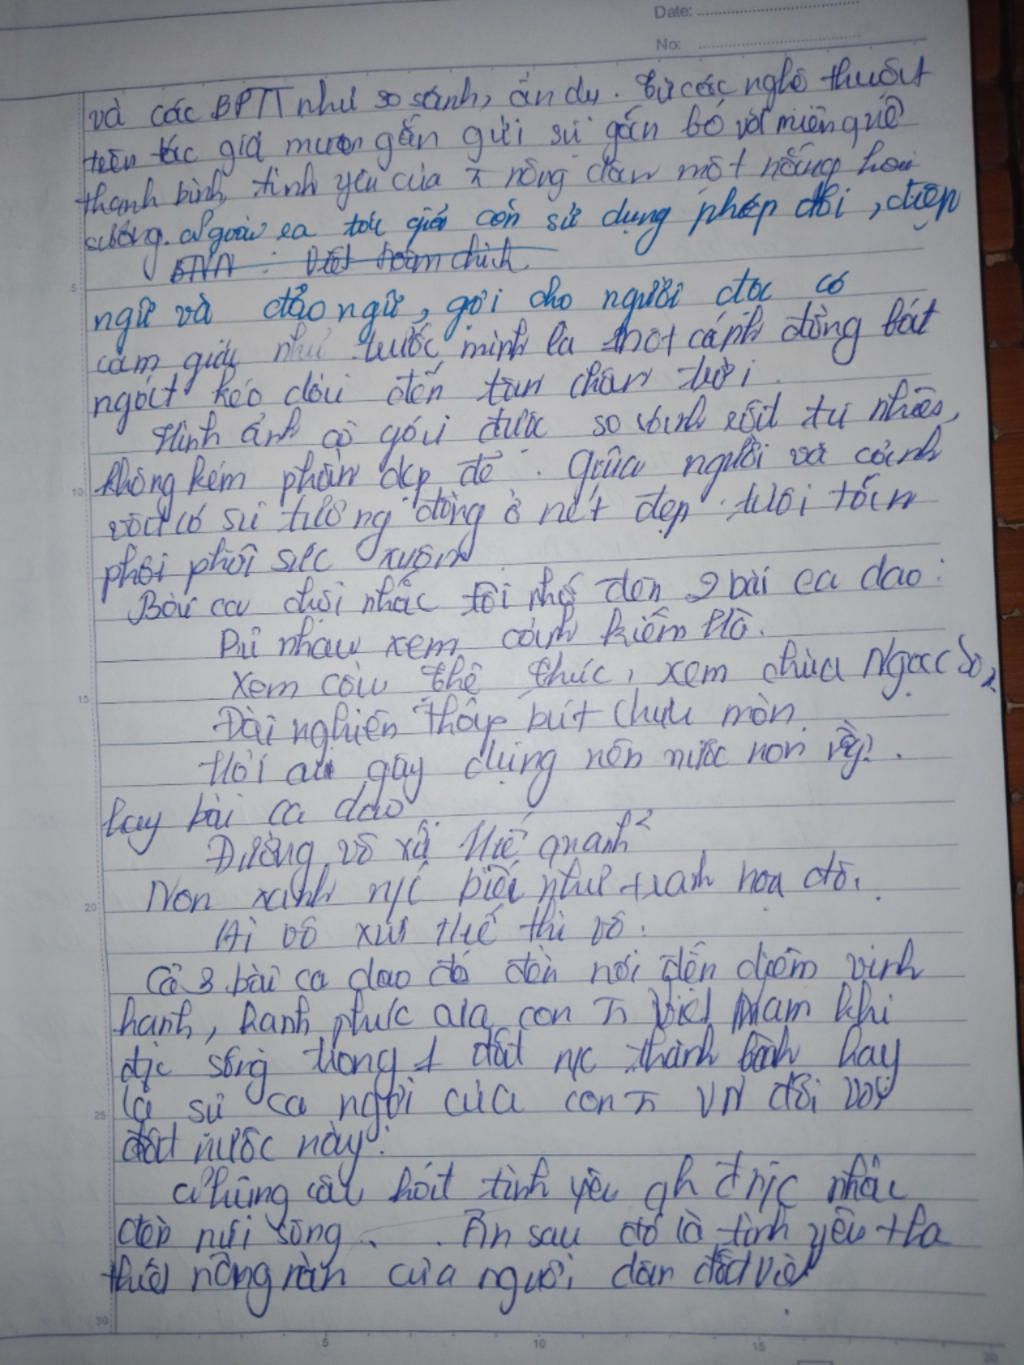 Date:
No:
và các BPTT như so sánh, ẩn dụ. Từ các nghệ thuật
trên tác giả mượn gần gửi sự gắn bó với miền quê
thanh bình, tình yêu của nông dân một nắng hai
sương. Ngoài ra tác giả còn sử dụng phép đối, điệp
BTVN : Viết hoàn chỉnh
ngữ và đảo ngữ, gợi cho người đọc có
cảm giác như trước mình là một cánh đồng bát
ngát kéo dài đến tận chân trời.
Hình ảnh cô gái được so sánh rất tự nhiên,
không kém phần đẹp đẽ. Giữa người và cảnh
vật có sự tương đồng ở nét đẹp tươi tắn
phơi phới sức xuân
Bài ca nhắc tôi nhớ đến 2 bài ca dao:
Rủ nhau xem cảnh Kiếm Hồ.
Xem cầu Thê Húc, xem chùa Ngọc Sơn,
Đài nghiên tháp bút chưa mòn
Hỏi ai gây dựng nên nước non này?.
hay bài ca dao
Đường vô xứ Huế quanh²
Non xanh nc biếc như tranh họa đồ.
Ai vô xứ Huế thì vô.
Cả 3 bài ca dao đó đều nói đến điểm vinh
hạnh, hạnh phúc của con Việt Nam khi
đc sống trong 1 đất nc thanh bình hay
là sự ca ngợi của con VN đối với
đất nước này.
Những câu hát tình yêu qh đ nc nhắc
đến núi sông . Ẩn sau đó là tình yêu tha
thiết nồng nàn của người dân đất Việt
5
10
15
20
25
30
5
10
15
20